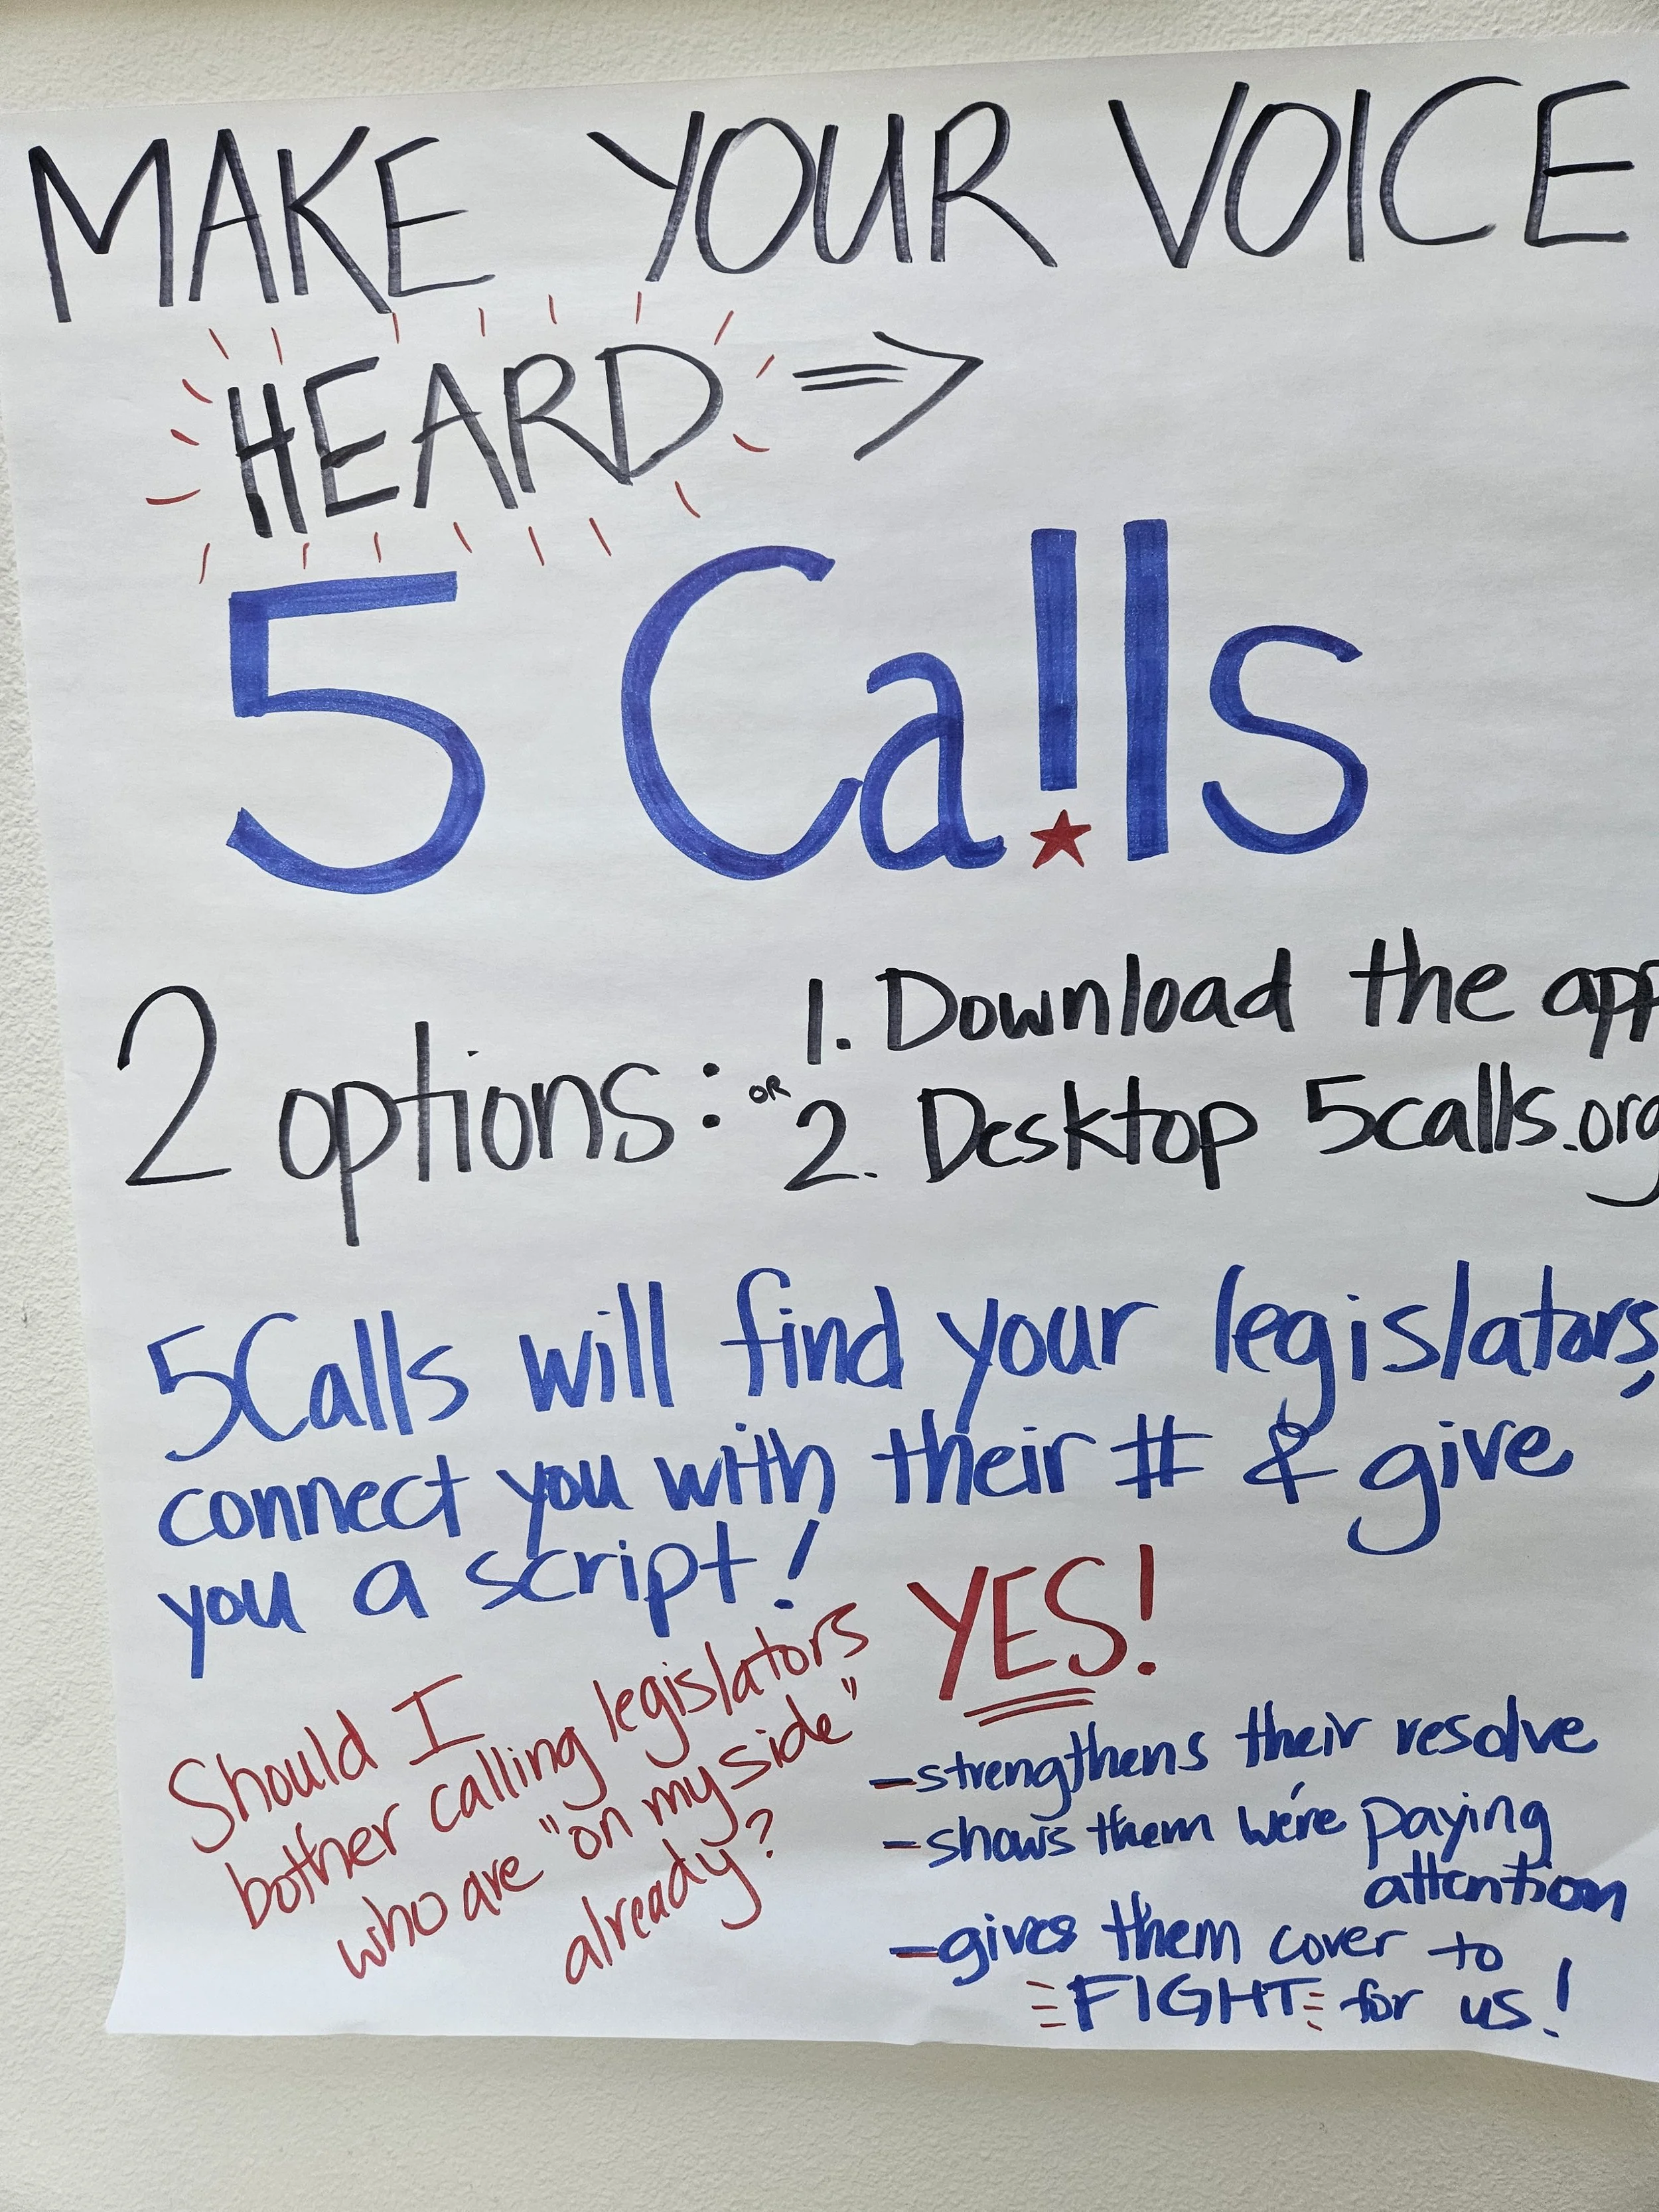 MAKE YOUR VOICE
HEARD ⇒
5 Ca!ls
2 options:
1. Download the app
OR
2. Desktop 5calls.org
5Calls will find your legislators,
connect you with their # & give
you a script!
Should I
bother calling legislators
who are "on my side"
already?
YES!
-strengthens their resolve
-shows them we're paying
attention
-gives them cover to
FIGHT for us!